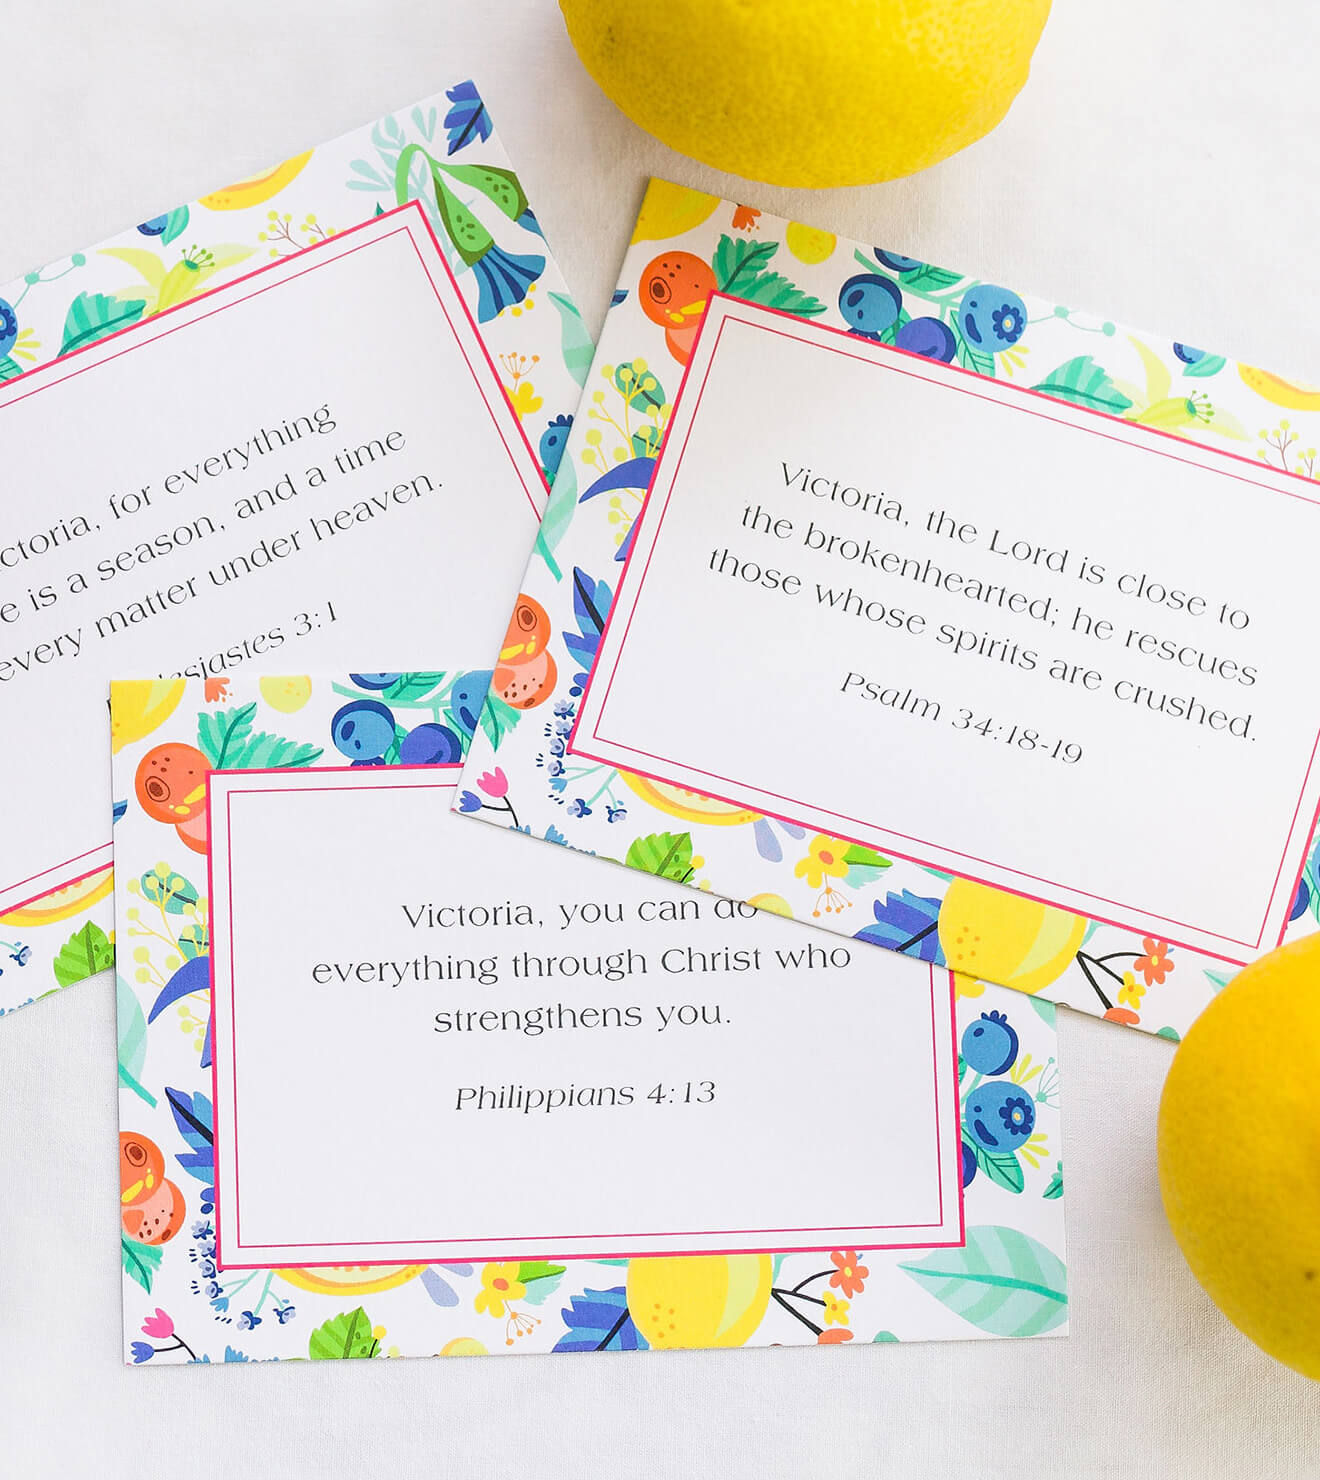 ctoria, for everything
e is a season, and a time
every matter under heaven.
lesiastes 3:1
Victoria, the Lord is close to
the brokenhearted; he rescues
those whose spirits are crushed.
Psalm 34:18-19
Victoria, you can do
everything through Christ who
strengthens you.
Philippians 4:13